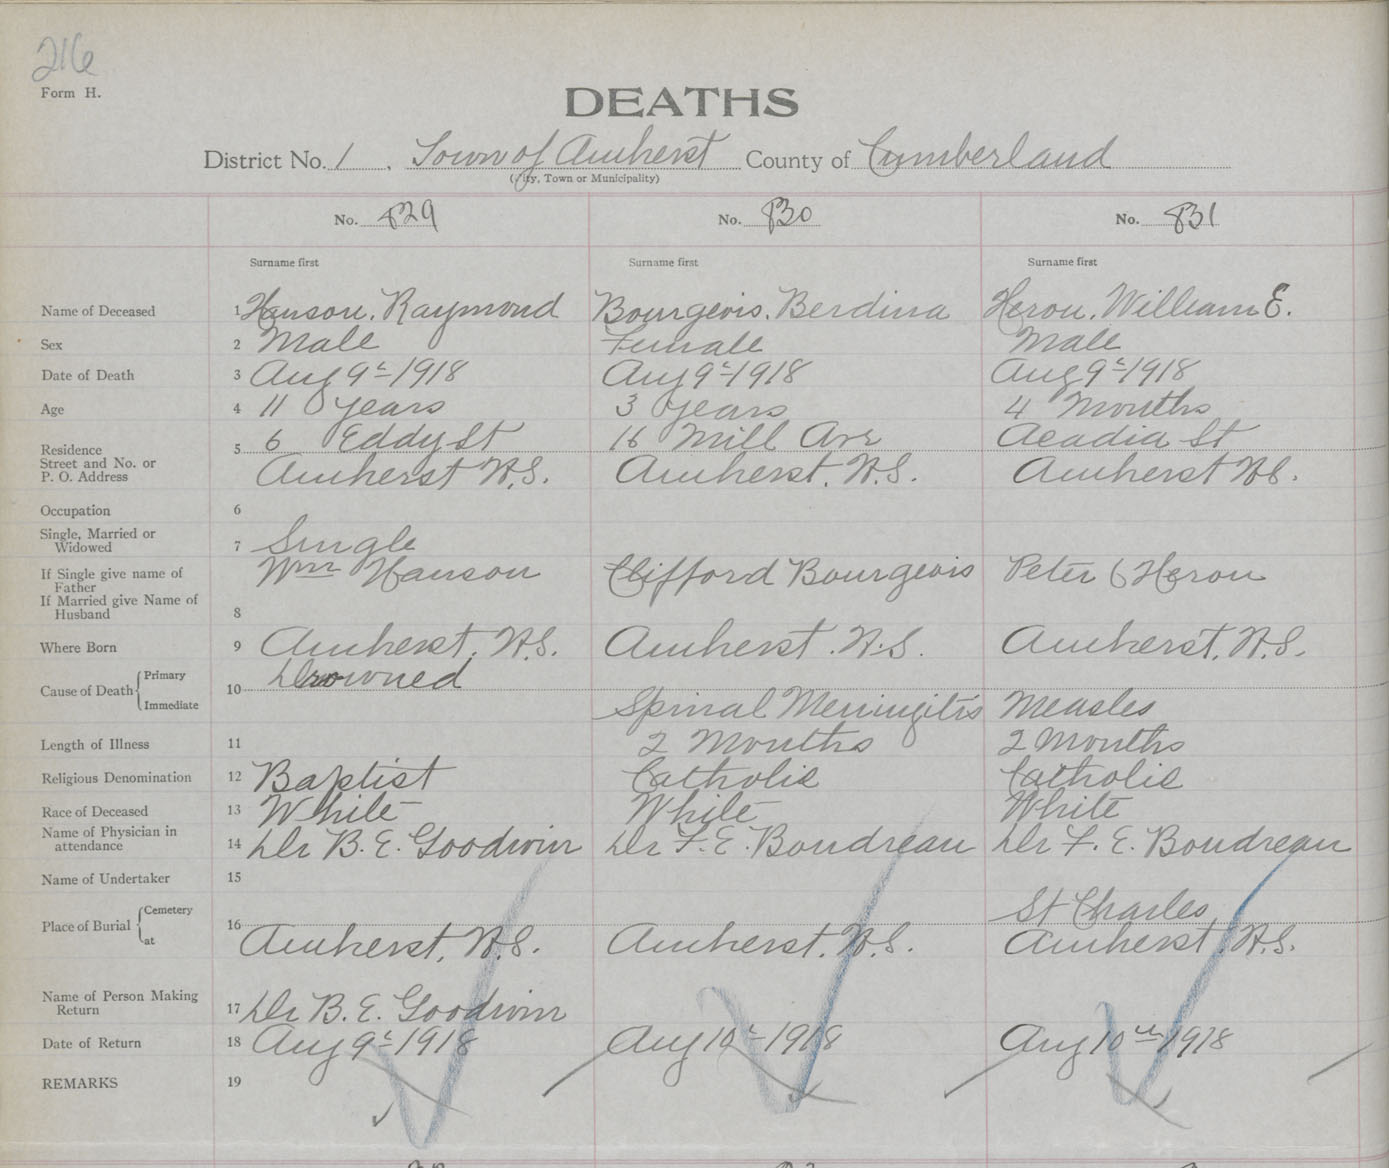 216
Form H.
DEATHS
District No. 1, Town of Amherst County of Cumberland
(City, Town or Municipality)
No. 829 No. 830 No. 831
Surname first Surname first Surname first
Name of Deceased 1 Hanson, Raymond Bourgeois, Berdina Heron, William E.
Sex 2 Male Female Male
Date of Death 3 Aug 9th 1918 Aug 9th 1918 Aug 9th 1918
Age 4 11 years 3 years 4 Months
Residence 5 6 Eddy St 16 Mill Ave Acadia St
Street and No. or
P. O. Address Amherst N.S. Amherst, N.S. Amherst N.S.
Occupation 6
Single, Married or
Widowed 7 Single
If Single give name of Wm Hanson Clifford Bourgeois Peter C Heron
Father
If Married give Name of
Husband 8
Where Born 9 Amherst, N.S. Amherst. N.S. Amherst, N.S.
Cause of Death Primary 10 Drowned
Immediate Spinal Meningitis Measles
Length of Illness 11 2 Months 2 Months
Religious Denomination 12 Baptist Catholic Catholic
Race of Deceased 13 White White White
Name of Physician in
attendance 14 Dr B. E. Goodwin Dr F. E. Boudreau Dr F. E. Boudreau
Name of Undertaker 15
Place of Burial Cemetery 16 St Charles,
at Amherst, N.S. Amherst, N.S. Amherst, N.S.
Name of Person Making
Return 17 Dr B. E. Goodwin
Date of Return 18 Aug 9th 1918 Aug 10th 1918 Aug 10th 1918
REMARKS 19